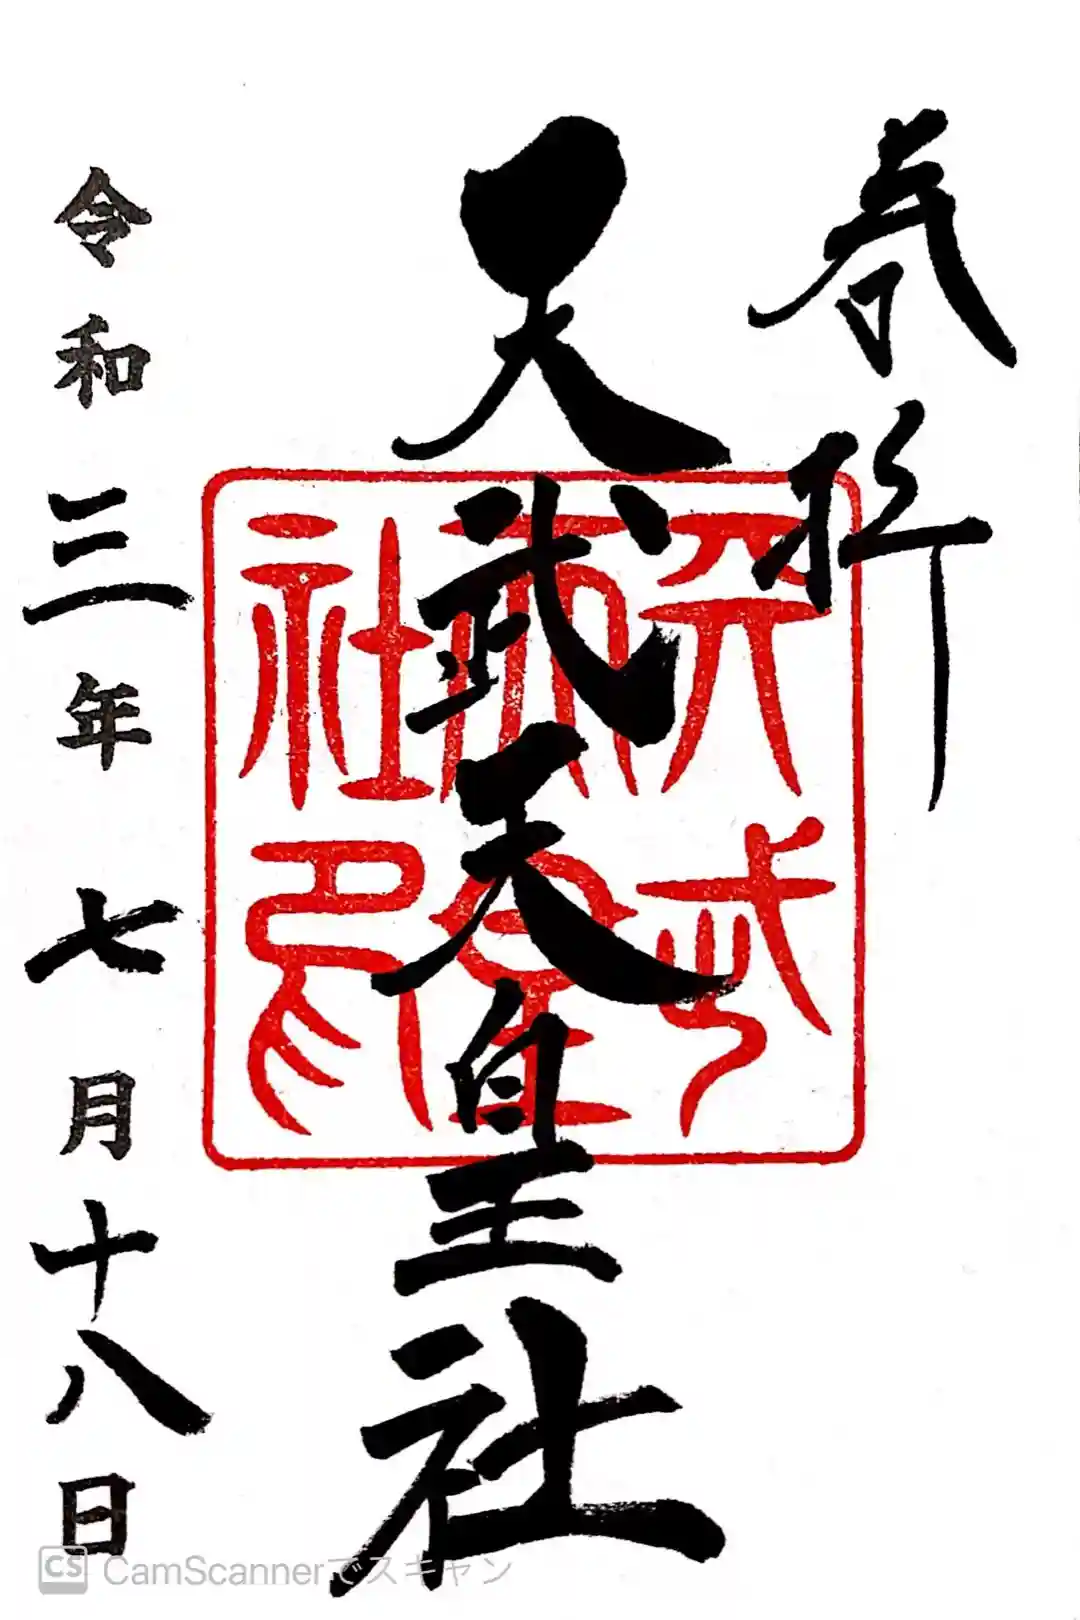 奉拝
天武天皇社
天武天皇社印
令和三年七月十八日
CS CamScannerでスキャン